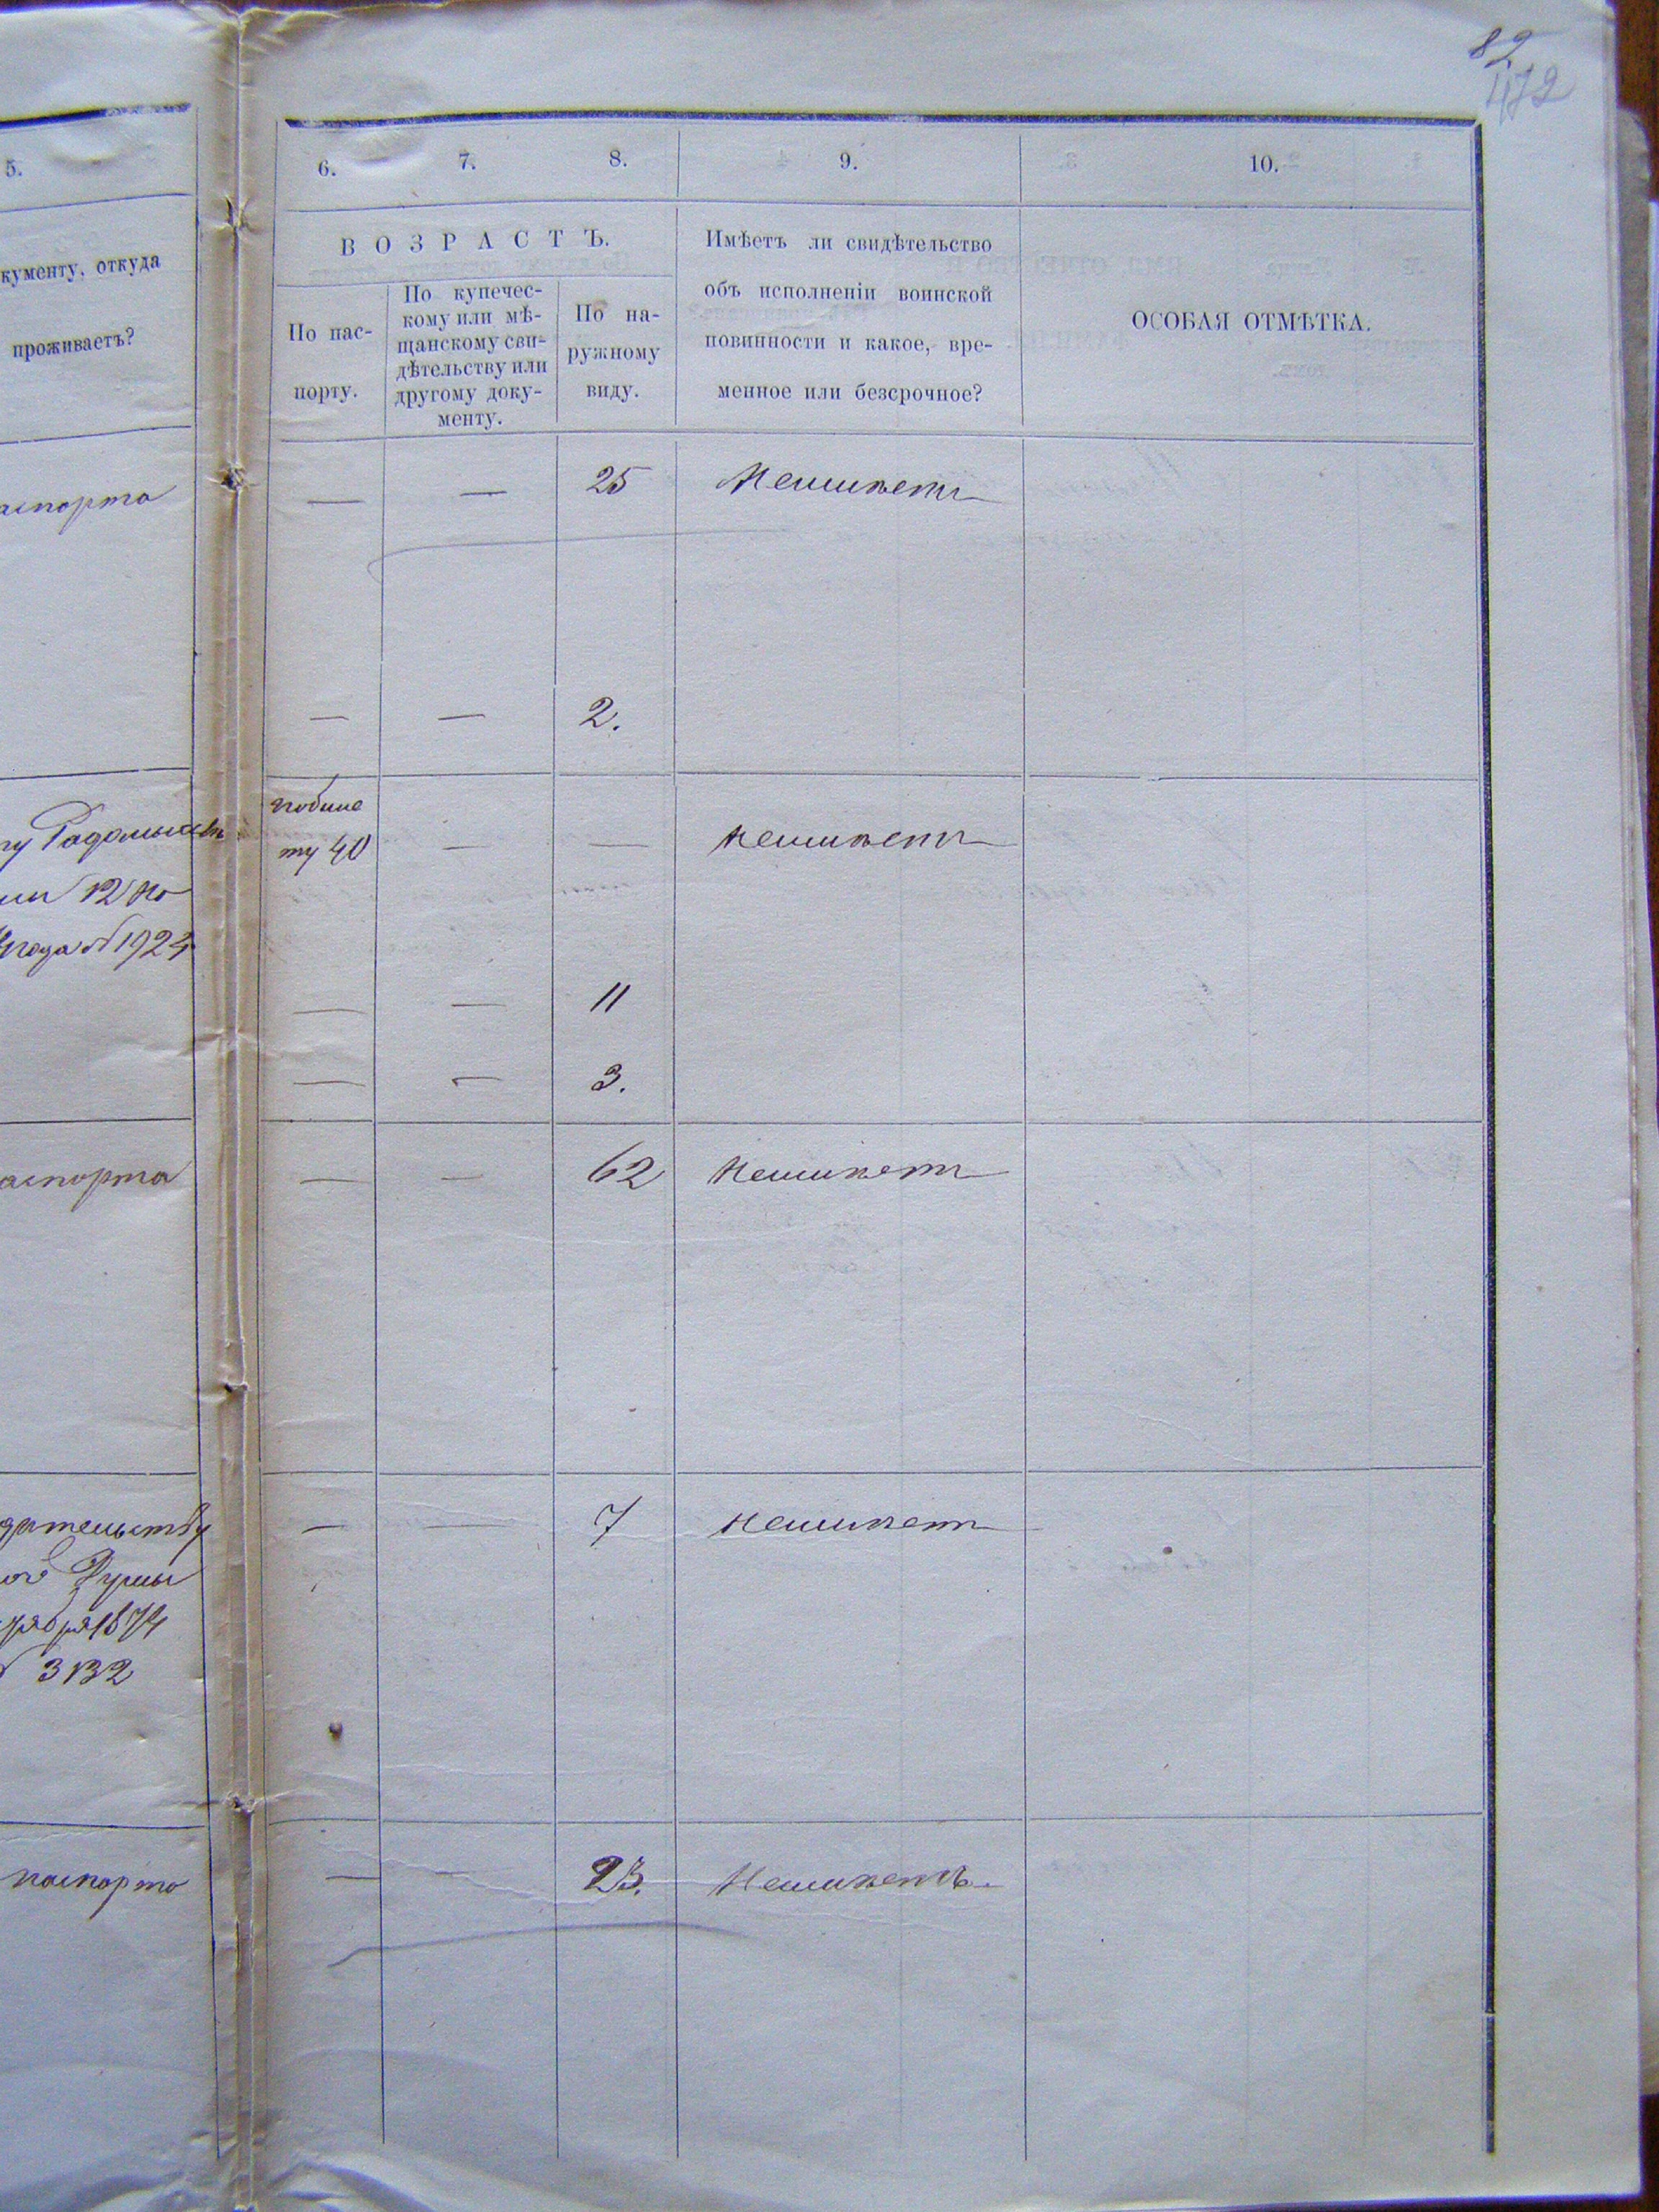 82
472
5.
6.
7.
8.
9.
10.
кументу, откуда
проживаетъ?
ВОЗРАСТЪ.
По пас-
порту.
По купечес-
кому или мѣ-
щанскому сви-
дѣтельству или
другому доку-
менту.
По на-
ружному
виду.
Имѣетъ ли свидѣтельство
объ исполненіи воинской
повинности и какое, вре-
менное или безсрочное?
ОСОБАЯ ОТМѢТКА.
аспорта
— — 25 Неимѣетъ
— — 2.
побиле
ту 40 — — неимѣетъ
у Радомысль
12 но
года № 1924
— — 11
— — 3.
аспорта — — 62 Неимѣетъ
дѣтельству — — 7 неимѣетъ
ой Думы
ября 1874
№ 3132
паспорта — — 23. Неимѣетъ.